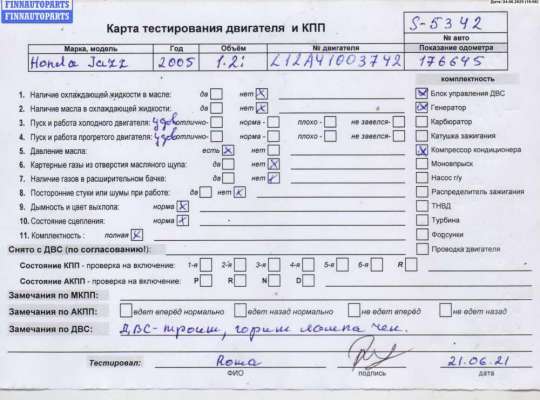 FINNAUTOPARTS
FINNAUTOPARTS
Карта тестирования двигателя и КПП
S-5342
№ авто
Марка, модель Год Объём № двигателя Показание одометра
Honda Jazz 2005 1.2i L12A41003742 176645
комплектность
1. Наличие охлаждающей жидкости в масле: да нет
Блок управления ДВС
2. Наличие масла в охлаждающей жидкости: да нет
Генератор
3. Пуск и работа холодного двигателя: удов отлично- норма - плохо - не завелся-
Карбюратор
4. Пуск и работа прогретого двигателя: удов отлично- норма - плохо - не завелся-
Катушка зажигания
5. Давление масла: есть нет
Компрессор кондиционера
6. Картерные газы из отверстия масляного щупа: да нет
Моновпрыск
7. Наличие газов в расширительном бачке: да нет
Насос г/у
8. Посторонние стуки или шумы при работе: да нет
Распределитель зажигания
9. Дымность и цвет выхлопа: норма
ТНВД
10. Состояние сцепления: норма
Турбина
11. Комплектность : полная
Форсунки
Снято с ДВС (по согласованию!):
Проводка двигателя
Состояние КПП - проверка на включение: 1-я 2-я 3-я 4-я 5-я 6-я R
Состояние АКПП - проверка на включение: P R N D
Замечания по МКПП:
Замечания по АКПП: едет вперёд нормально едет назад нормально не едет вперёд не едет назад
Замечания по ДВС: ДВС-троит, горит лампа чек.
Тестировал: Рома 21.06.21
ФИО подпись дата